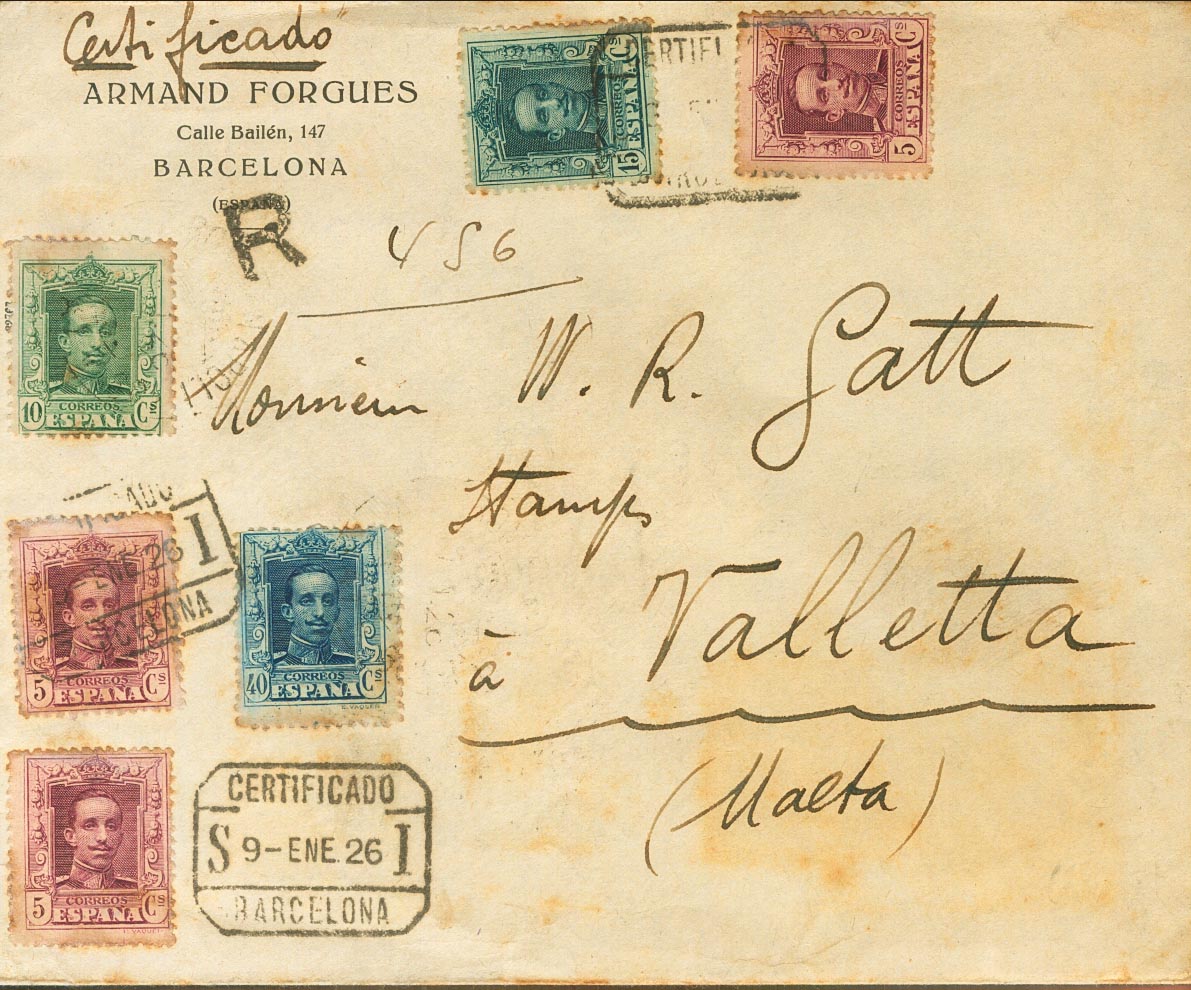 Certificado
ARMAND FORGUES
Calle Bailén, 147
BARCELONA
(ESPAÑA)
R
456
15 CORREOS ESPAÑA Cs
5 CORREOS ESPAÑA Cs
CERTIFI
Monsieur W. R. Gatt
Stamps
à Valletta
(Malta)
CORREOS
10 ESPAÑA Cs
ENE 26 I
CORREOS
5 ESPAÑA Cs
CORREOS
40 ESPAÑA Cs
E. VAQUER
CORREOS
5 ESPAÑA Cs
E. VAQUER
CERTIFICADO
S 9-ENE.26 I
BARCELONA